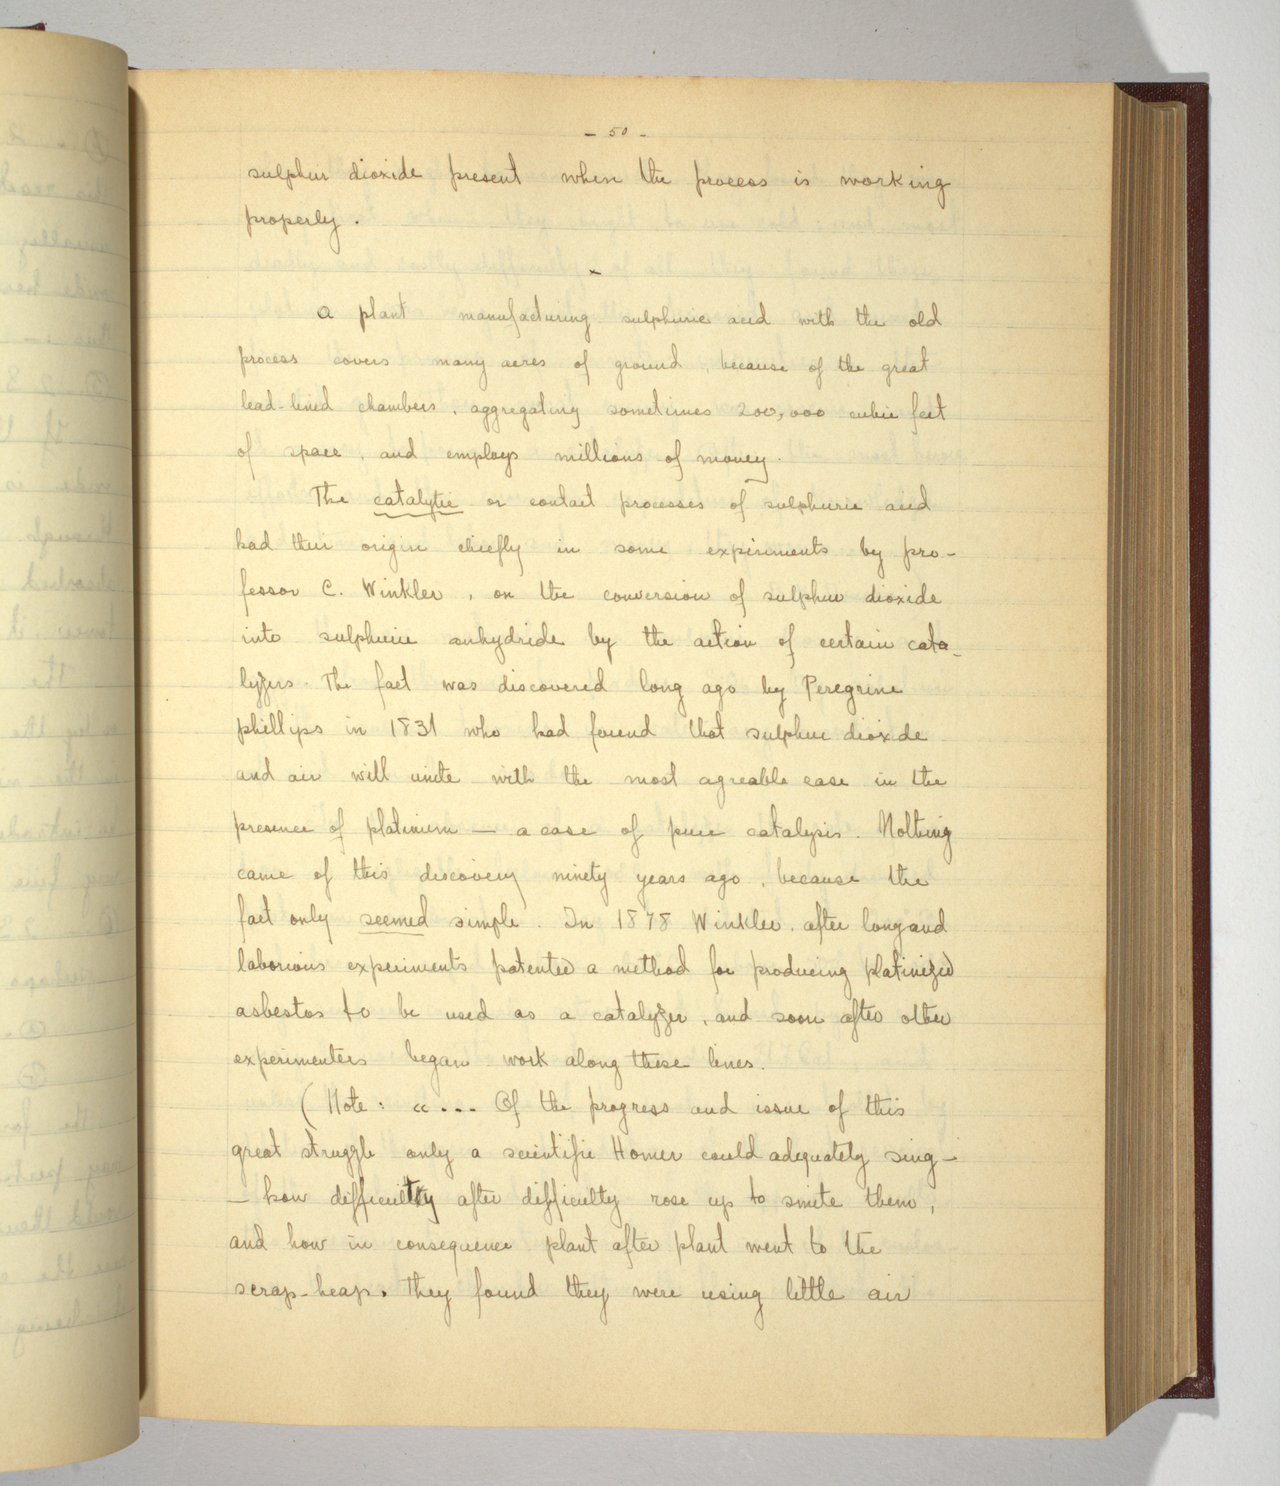 - 50 -
sulphur dioxide present when the process is working
properly.
A plant manufacturing sulphuric acid with the old
process covers many acres of ground, because of the great
lead-lined chambers, aggregating sometimes 200,000 cubic feet
of space, and employs millions of money.
The catalytic or contact processes of sulphuric acid
had their origin chiefly in some experiments by pro-
fessor C. Winkler, on the conversion of sulphur dioxide
into sulphuric anhydride by the action of certain cata-
lyzers. The fact was discovered long ago by Peregrine
phillips in 1831 who had found that sulphur dioxide
and air will unite with the most agreable ease in the
presence of platinium — a case of pure catalysis. Nothing
came of this discovery ninety years ago, because the
fact only seemed simple. In 1878 Winkler, after long and
laborious experiments patented a method for producing platinized
asbestos to be used as a catalyzer, and soon after other
experimenters began work along these lines.
(Note: «... Of the progress and issue of this
great struggle only a scientific Homer could adequately sing —
— how difficulty after difficulty rose up to smite them,
and how in consequence plant after plant went to the
scrap-heap. They found they were using little air